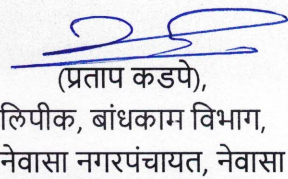 (प्रताप कडपे),
लिपीक, बांधकाम विभाग,
नेवासा नगरपंचायत, नेवासा